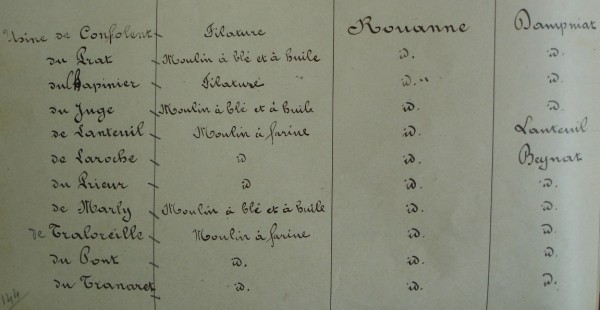 Usine de Confolent Filature Rouanne Dampniat
du Prat Moulin à blé et à huile id. id.
du Chapinier Filature id. id.
du Juge Moulin à blé et à huile id. id.
de Lanteuil Moulin à farine id. Lanteuil
de Laroche id id. Beynat
du Prieur id id. id.
de Marly Moulin à blé et à huile id. id.
de Traloreille Moulin à farine id. id.
du Pont id. id. id.
du Tranaret id. id. id.
144